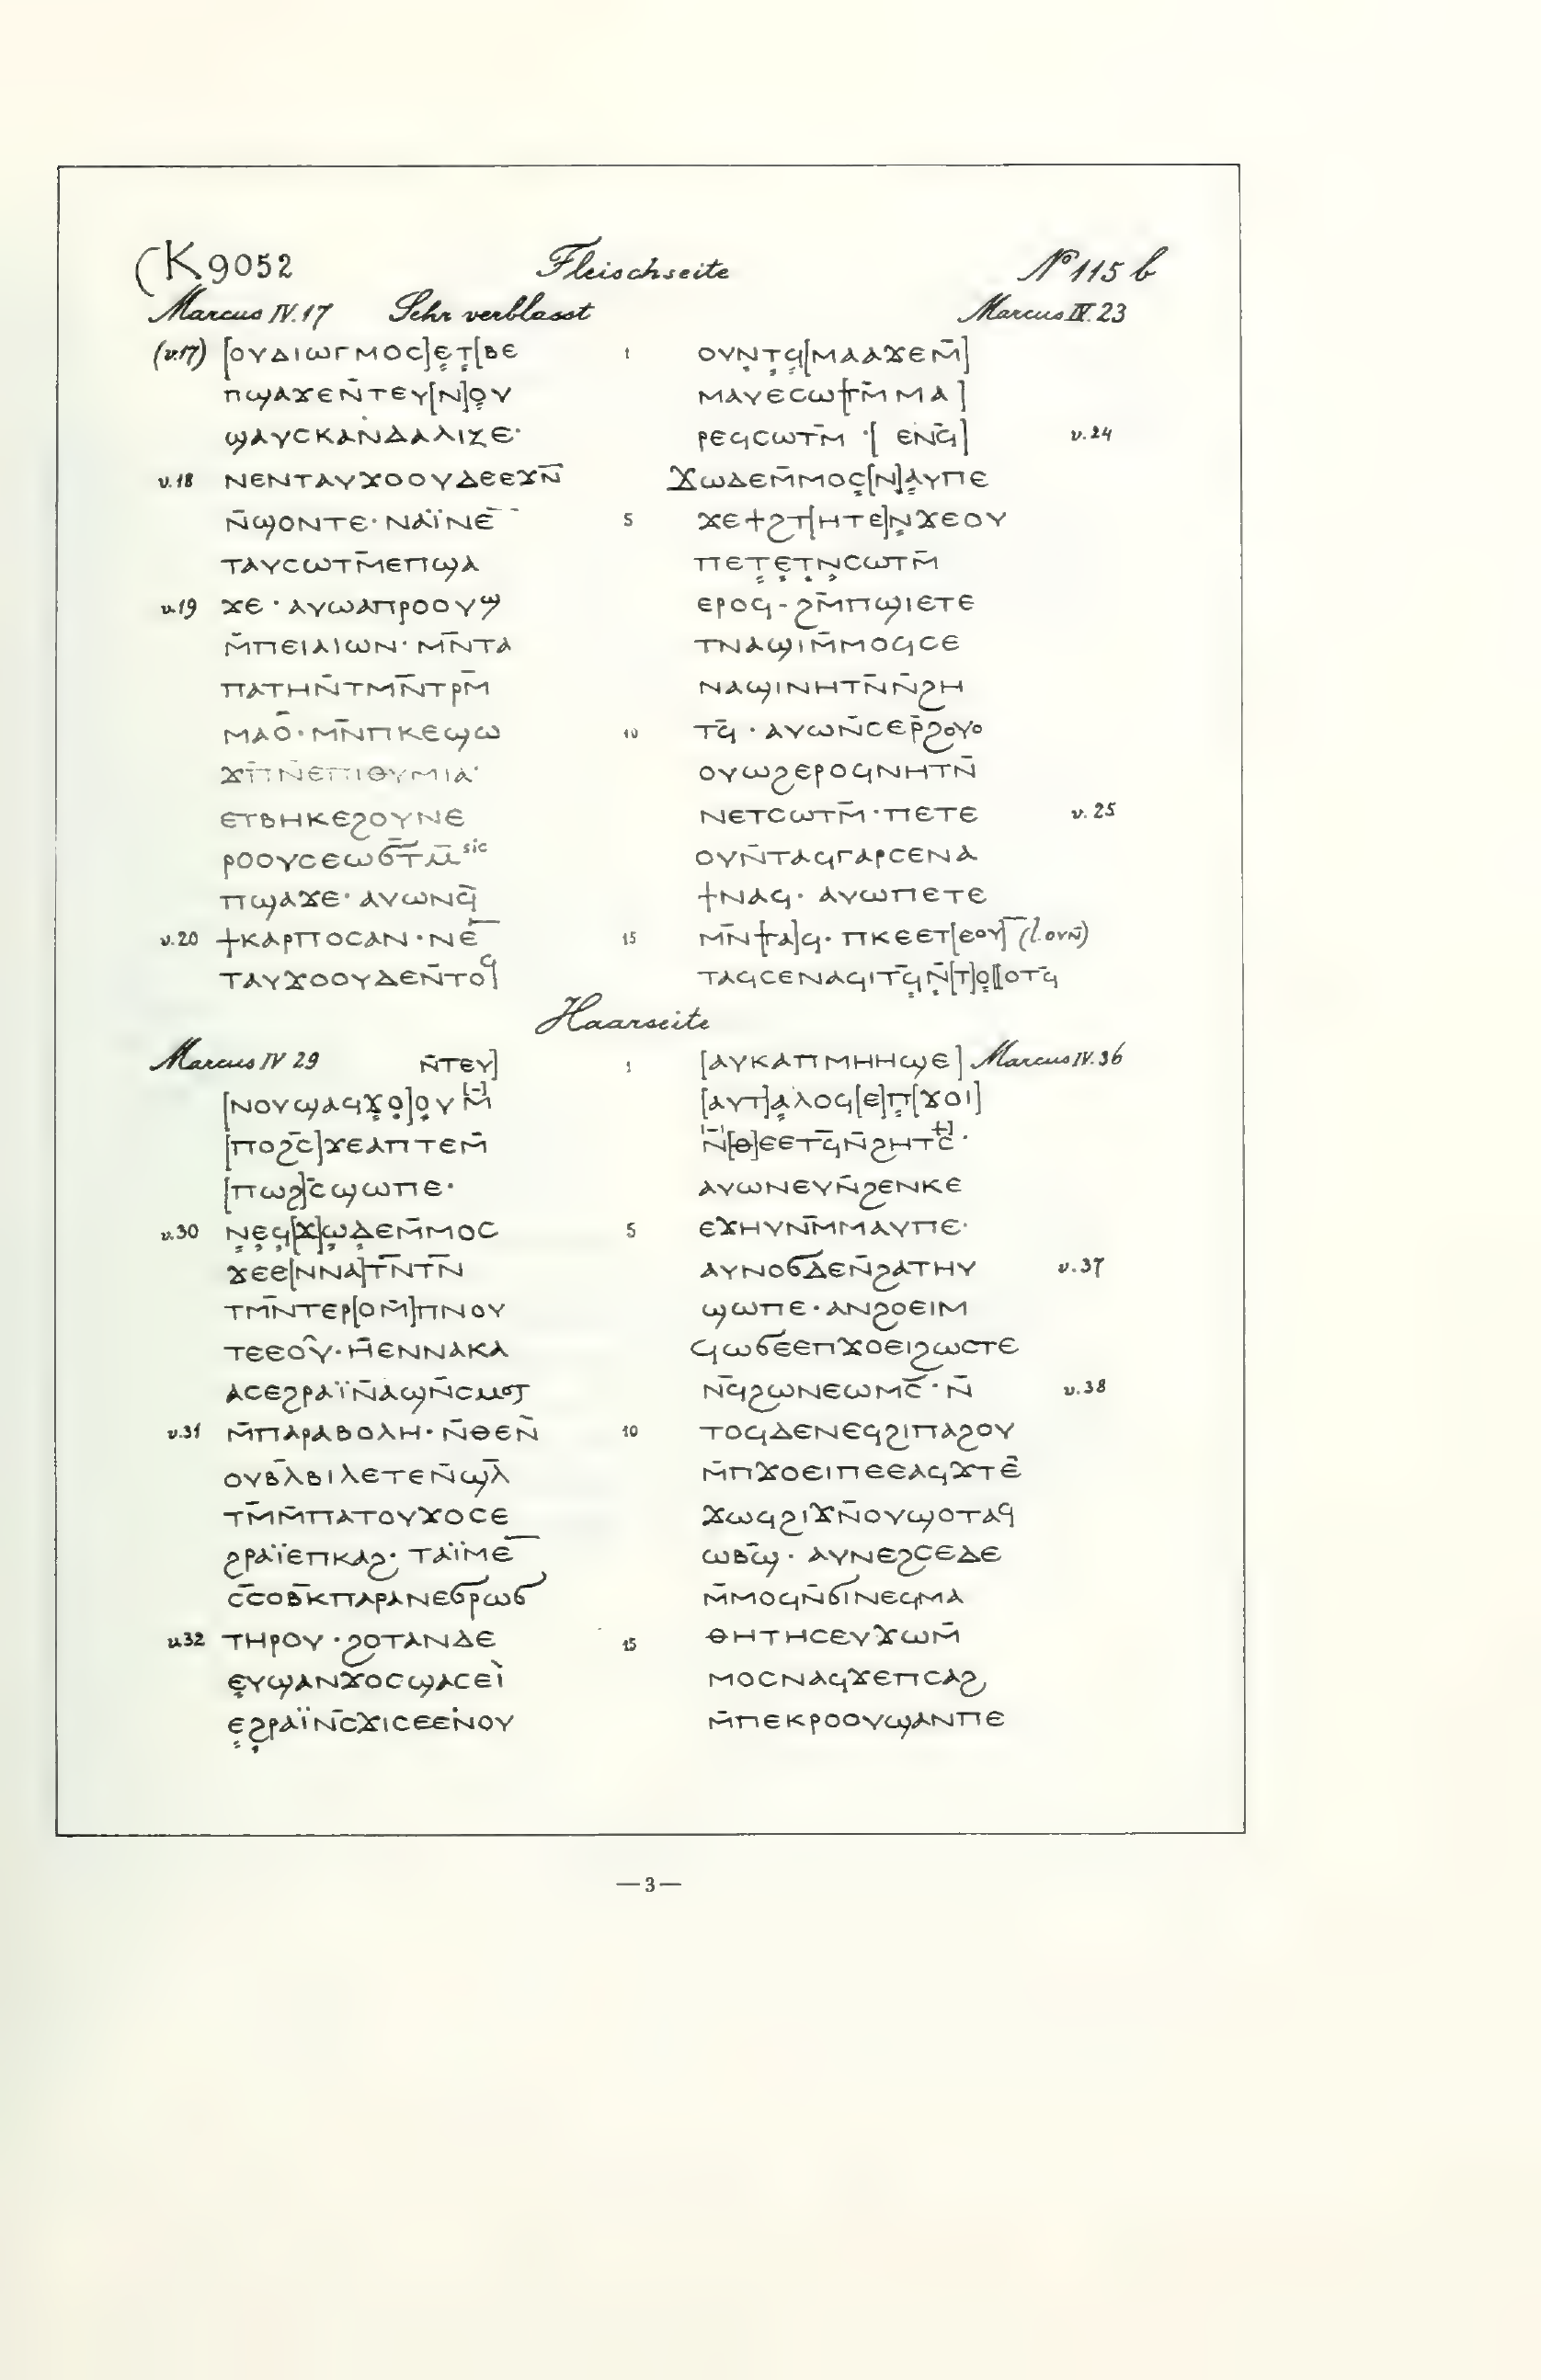 (K 9052 Fleischseite No 115 b
Marcus IV. 17 Sehr verblasst Marcus IV. 23
(v.17) [ⲟⲩⲇⲓⲱⲅⲙⲟⲥ]ⲉ̣ⲧ̣[ⲃⲉ
ⲡϣⲁϫⲉⲛ̄ⲧⲉⲩ[ⲛ]ⲟ̣ⲩ
ϣⲁⲩⲥⲕⲁⲛⲇⲁⲗⲓⲍⲉ·
v.18 ⲛⲉⲛⲧⲁⲩϫⲟⲟⲩⲇⲉⲉϫⲛ̄
ⲛ̄ϣⲟⲛⲧⲉ· ⲛⲁⲓ̈ⲛⲉ̅
ⲧⲁⲩⲥⲱⲧⲙ̄ⲉⲡϣⲁ
v.19 ϫⲉ · ⲁⲩⲱⲁⲡⲣⲟⲟⲩϣ
ⲙ̄ⲡⲉⲓⲁⲓⲱⲛ· ⲙⲛ̄ⲧⲁ
ⲡⲁⲧⲏⲛ̄ⲧⲙⲛ̄ⲧⲣⲙ̄
ⲙⲁⲟ̄· ⲙⲛ̄ⲡⲕⲉϣⲱ
ϫⲡ̄ⲛ̄ⲉⲡⲓⲑⲩⲙⲓⲁ·
ⲉⲧⲃⲏⲕⲉϩⲟⲩⲛⲉ
ⲣⲟⲟⲩⲥⲉⲱϭⲧ̄ⲙ̄ sic
ⲡϣⲁϫⲉ· ⲁⲩⲱⲛϥ̄
v.20 ϯⲕⲁⲣⲡⲟⲥⲁⲛ· ⲛⲉ̅
ⲧⲁⲩϫⲟⲟⲩⲇⲉⲛ̄ⲧⲟϥ
1 ⲟⲩⲛ̣ⲧ̣ϥ̣[ⲙⲁⲁϫⲉⲙ̄]
ⲙⲁⲩⲉⲥⲱ[ⲧⲙ̄ⲙⲁ]
ⲣⲉϥⲥⲱⲧⲙ̄ ·[ ⲉⲛϥ̄] v.24
ϫⲱⲇⲉⲙ̄ⲙⲟⲥ̣[ⲛ]ⲁ̣ⲩⲡⲉ
5 ϫⲉϯϩⲧ[ⲏⲧⲉ]ⲛ̣ϫⲉⲟⲩ
ⲡⲉⲧ̣ⲉ̣ⲧ̣ⲛ̣ⲥⲱⲧⲙ̄
ⲉⲣⲟϥ - ϩⲙ̄ⲡϣⲓⲉⲧⲉ
ⲧⲛⲁϣⲓⲙ̄ⲙⲟϥⲥⲉ
ⲛⲁϣⲓⲛⲏⲧⲛ̄ⲛ̄ϩⲏ
10 ⲧϥ̄ · ⲁⲩⲱⲛ̄ⲥⲉⲣ̄ϩⲟⲩⲟ
ⲟⲩⲱϩⲉⲣⲟϥⲛⲏⲧⲛ̄
ⲛⲉⲧⲥⲱⲧⲙ̄ · ⲡⲉⲧⲉ v. 25
ⲟⲩⲛ̄ⲧⲁϥⲅⲁⲣⲥⲉⲛⲁ
ϯⲛⲁϥ· ⲁⲩⲱⲡⲉⲧⲉ
15 ⲙⲛ̄[ⲧⲁ]ϥ· ⲡⲕⲉⲉⲧ[ⲉⲟⲩ]̅ (l. ⲟⲩⲛ̄)
ⲧⲁϥⲥⲉⲛⲁϥⲓⲧϥ̣̄ⲛ̣̄[ⲧ]ⲟ̣[[ⲟⲧϥ̄
Haarseite
Marcus IV 29 ⲛ̄ⲧⲉⲩ]
[ⲛⲟⲩϣⲁϥϫ̣ⲟ̣]ⲟ̣ⲩⲙ̄
[ⲡⲟϩⲥ̄]ϫⲉⲁⲡⲧⲉⲙ̄
[ⲡⲱϩ]ⲥ̄ϣⲱⲡⲉ·
v.30 ⲛ̣ⲉ̣ϥ̣[ϫ]ⲱ̣ⲇ̣ⲉⲙ̄ⲙⲟⲥ
ϫⲉⲉ[ⲛⲛⲁ]ⲧⲛ̄ⲧⲛ̄
ⲧⲙⲛ̄ⲧⲉⲣ[ⲟⲙ̄]ⲡⲛⲟⲩ
ⲧⲉⲉⲟⲩ̂· ⲏ̄ⲉⲛⲛⲁⲕⲁ
ⲁⲥⲉϩⲣⲁⲓ̈ⲛ̄ⲁϣⲛ̄ⲥⲙⲟⲧ
v.31 ⲙ̄ⲡⲁⲣⲁⲃⲟⲗⲏ· ⲛ̄ⲑⲉⲛ̄
ⲟⲩⲃⲗ̄ⲃⲓⲗⲉⲧⲉⲛ̄ϣⲗ̄
ⲧⲙ̄ⲙ̄ⲡⲁⲧⲟⲩϫⲟⲥⲉ
ϩⲣⲁⲓ̈ⲉⲡⲕⲁϩ· ⲧⲁⲓ̈ⲙⲉ̅
ⲥ̄ⲥⲟⲃ̄ⲕⲡⲁⲣⲁⲛⲉϭⲣⲱϭ
v.32 ⲧⲏⲣⲟⲩ · ϩⲟⲧⲁⲛⲇⲉ
ⲉ̣ⲩϣⲁⲛϫⲟⲥϣⲁⲥⲉⲓ̀
ⲉ̣ϩ̣ⲣⲁⲓ̈ⲛⲥ̄ϫⲓⲥⲉⲉⲛ̇ⲟⲩ
1 [ⲁⲩⲕⲁⲡⲙⲏⲏϣⲉ] Marcus IV. 36
[ⲁⲩⲧ]ⲁ̣ⲗⲟϥ[ⲉ]ⲡ̣[ϫⲟⲓ]
ⲛ̄[ⲑ]ⲉⲉⲧϥ̄ⲛ̄ϩⲏⲧⲥ̄·
ⲁⲩⲱⲛⲉⲩⲛ̄ϩⲉⲛⲕⲉ
5 ⲉϫⲏⲩⲛⲙ̄ⲙⲁⲩⲡⲉ·
ⲁⲩⲛⲟϭⲇⲉⲛ̄ϩⲁⲧⲏⲩ v.37
ϣⲱⲡⲉ· ⲁⲛϩⲟⲉⲓⲙ
ϥⲱϭⲉⲉⲡϫⲟⲉⲓϩⲱⲥⲧⲉ
ⲛϥ̄ϩⲱⲛⲉⲱⲙⲥ̄ · ⲛ̄ v.38
10 ⲧⲟϥⲇⲉⲛⲉϥϩⲓⲡⲁϩⲟⲩ
ⲙ̄ⲡϫⲟⲉⲓⲡⲉⲉⲁϥϫⲧⲉ̄
ϫⲱϥϩⲓϫⲛ̄ⲟⲩϣⲟⲧⲁϥ
ⲱⲃϣ̄ · ⲁⲩⲛⲉϩⲥⲉⲇⲉ
ⲙ̄ⲙⲟϥⲛ̄ϭⲓⲛⲉϥⲙⲁ
15 ⲑⲏⲧⲏⲥⲉⲩϫⲱⲙ̄
ⲙⲟⲥⲛⲁϥϫⲉⲡⲥⲁϩ
ⲙ̄ⲡⲉⲕⲣⲟⲟⲩϣⲁⲛⲡⲉ
— 3 —